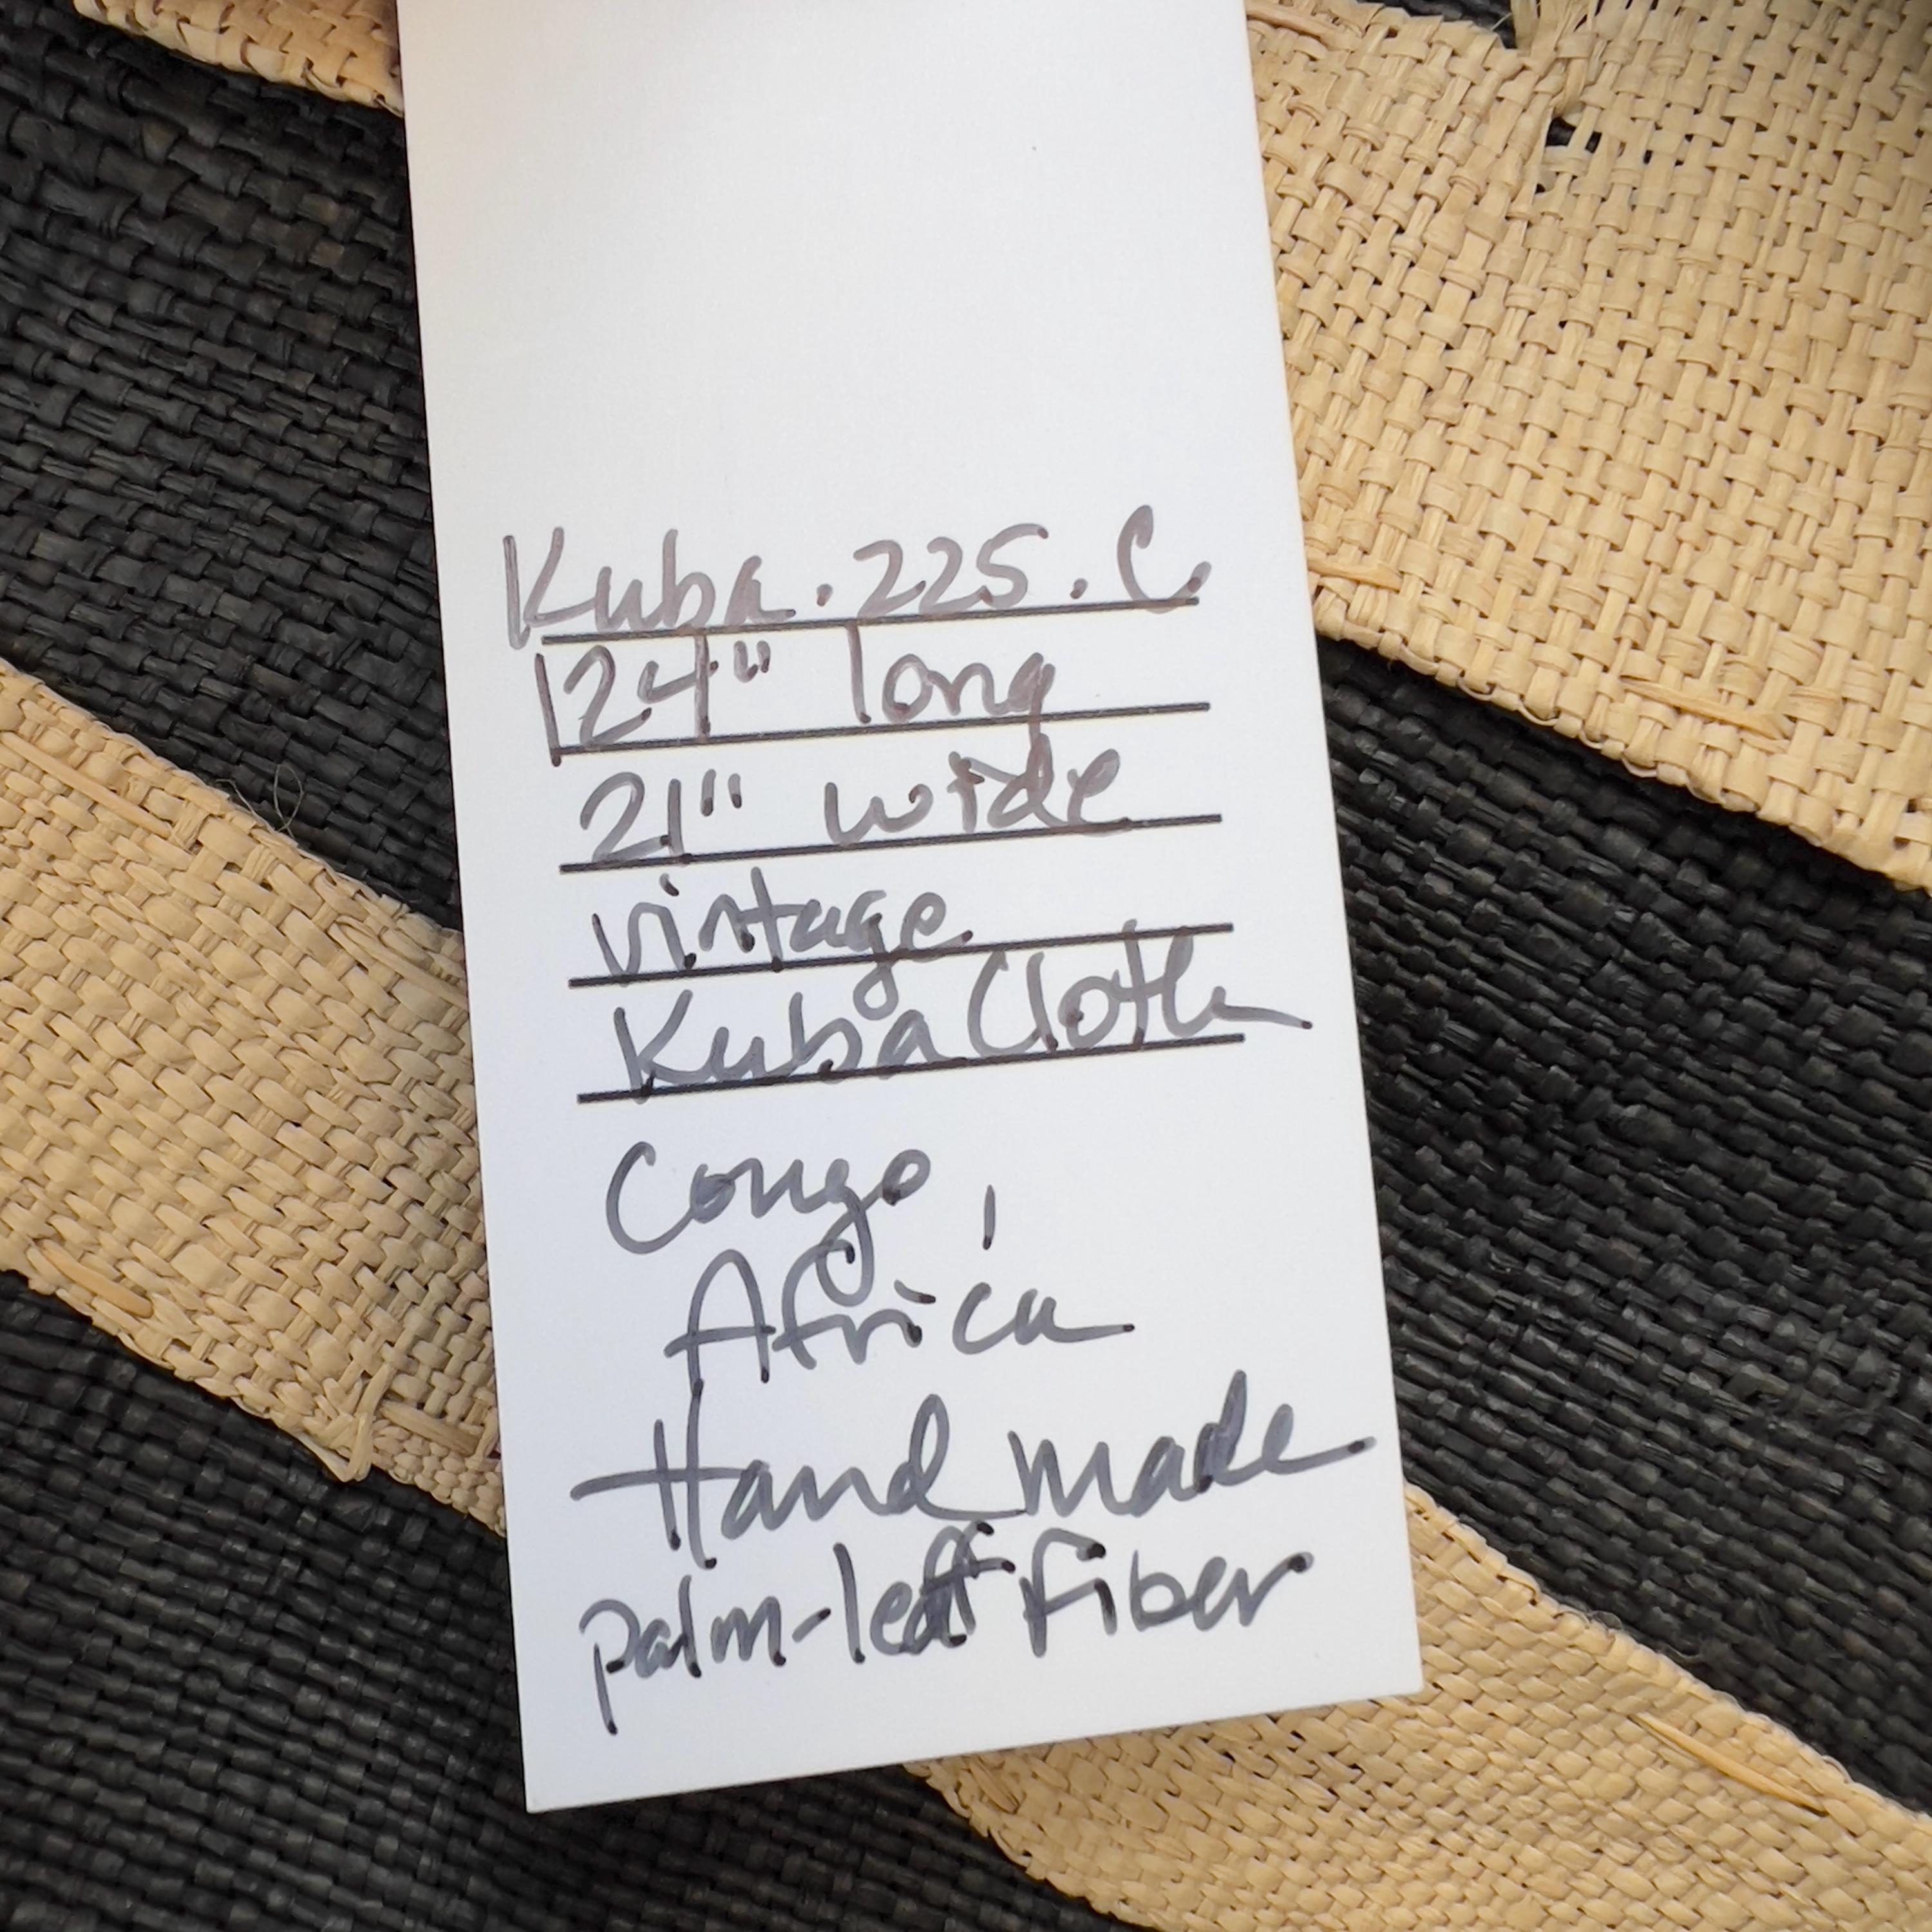 Kuba.225.C
124" long
21" wide
vintage
Kuba Cloth
Congo,
Africa
Hand made
palm-leaf fiber